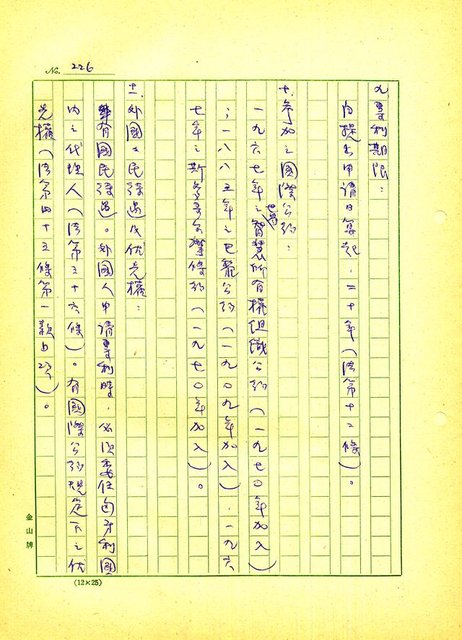 No. 226
九、專利期限：
自提出申請日算起，二十年（法第十二條）。
十、參加之國際公約：
一九六七年之世界智慧所有權組織公約（一九七〇年加入）
；一八八三年之巴黎公約（一九〇九年加入）．一九六
七年之斯多哥爾摩條約（一九七〇年加入）。
十一、外國人民待遇及優先權：
享有國民待遇。外國人申請專利時，必須委任匈牙利國
內之代理人（法第三十六條）。有國際公約規定下之優
先權（法第四十三條第一款b項）。
金山牌
(12×25)